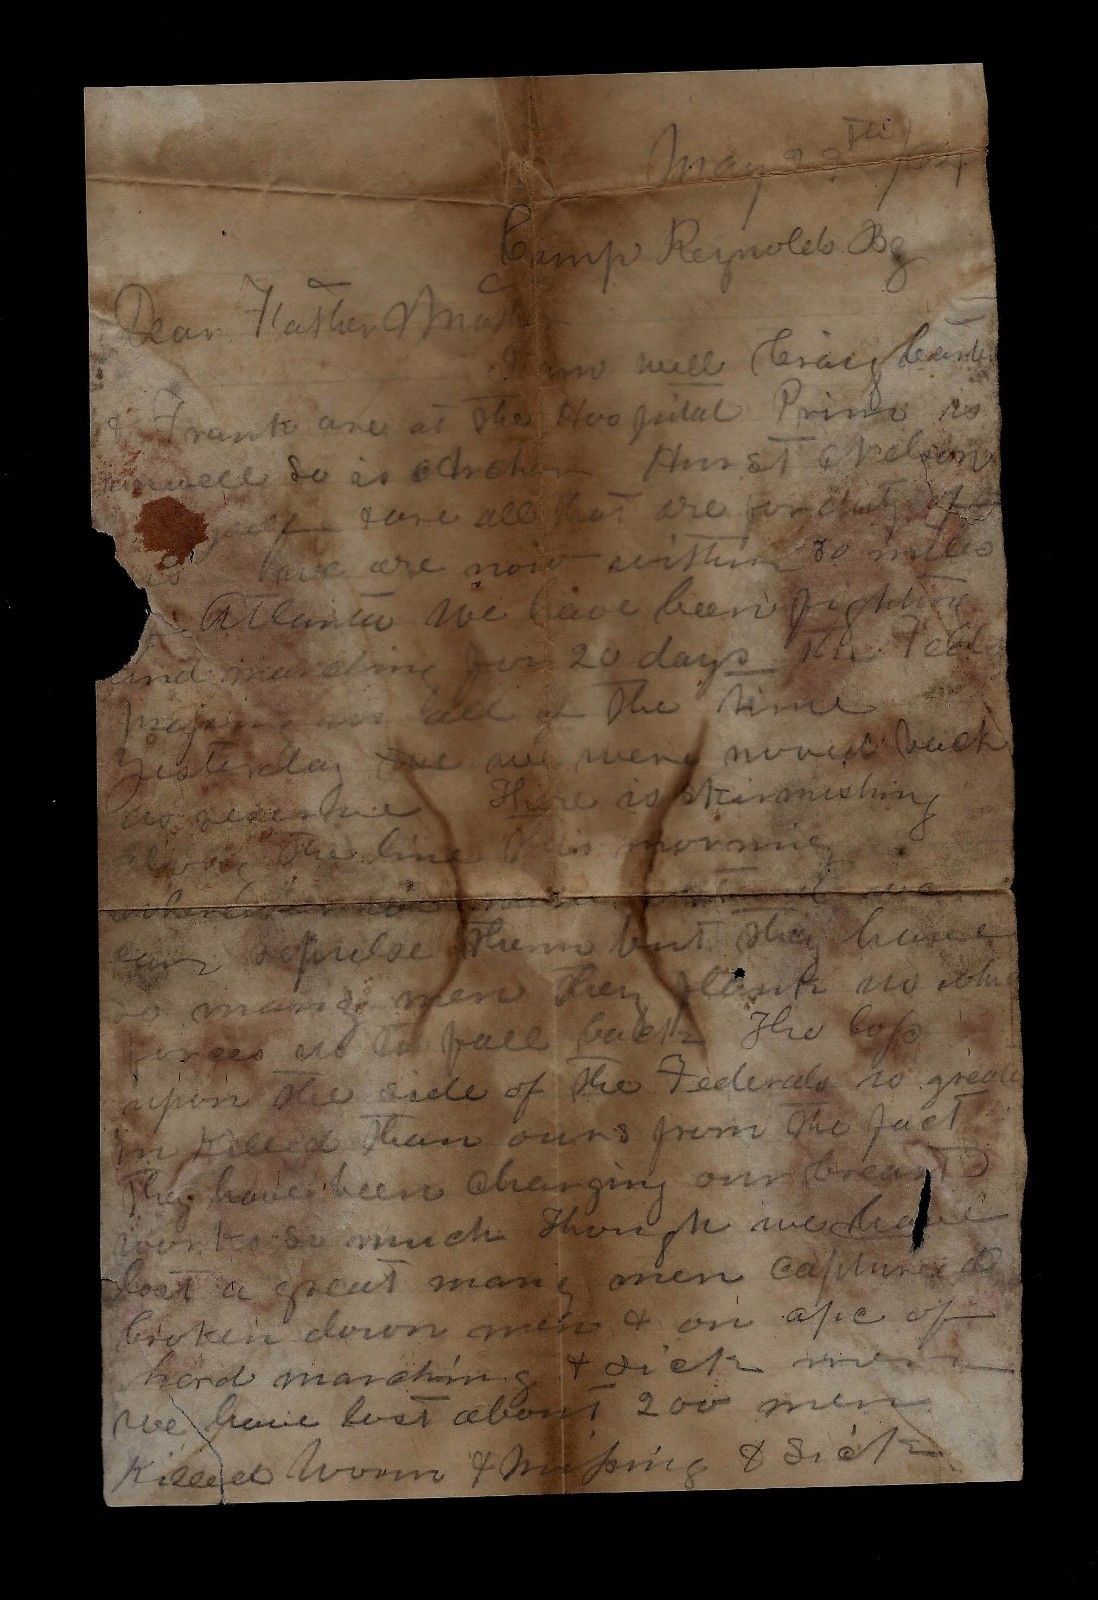 May 23th /64
Camp Reynolds Bg
Dear Father & Mother
I am well Craig
& Frank are at the Hospital Prim is
unwell So is Archer Hurst & Nelson
& are all that are for duty
we are now within 30 miles
Atlanta We have been fighting
and marching for 20 days The Feds
us all of the time
Yesterday we were moved back
as reserve There is skirmishing
along the line this morning
we
can repulse them but they have
so many men they flank us
forces us to fall back The loss
upon the side of the Federals is great
in Killed than ours from the fact
they have been charging our breast
works so much Though we have
lost a great many men captured
broken down men & on a/c of
hard marching & sick men
we have lost about 200 men
Killed Woun & Missing & Sick